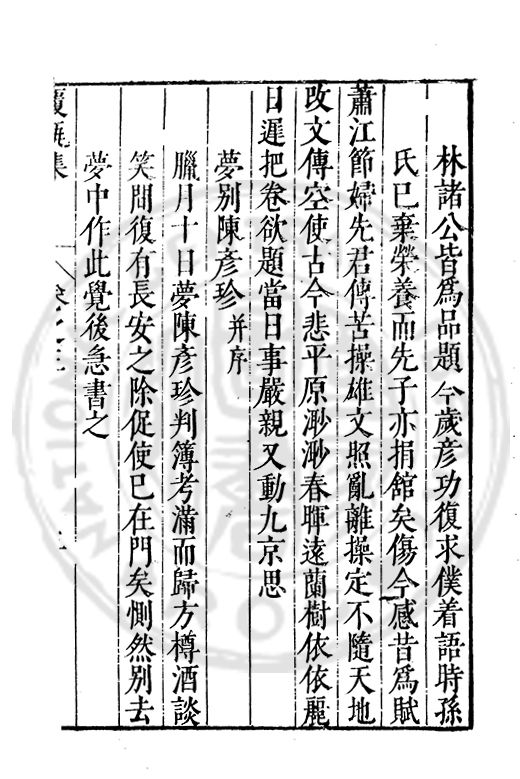 林諸公皆爲品題今歲彦功復求僕着語時孫
氏已棄榮養而先子亦捐館矣傷今感昔爲賦
蕭江節婦先君傳苦操雄文照亂離操定不隨天地
改文傳空使古今悲平原渺渺春暉遠蘭樹依依麗
日遲把卷欲題當日事嚴親又動九京思
夢別陳彦珍并序
臘月十日夢陳彦珍判簿考滿而歸方樽酒談
笑間復有長安之除促使已在門矣惻然別去
夢中作此覺後急書之
覆瓿集
卷之三